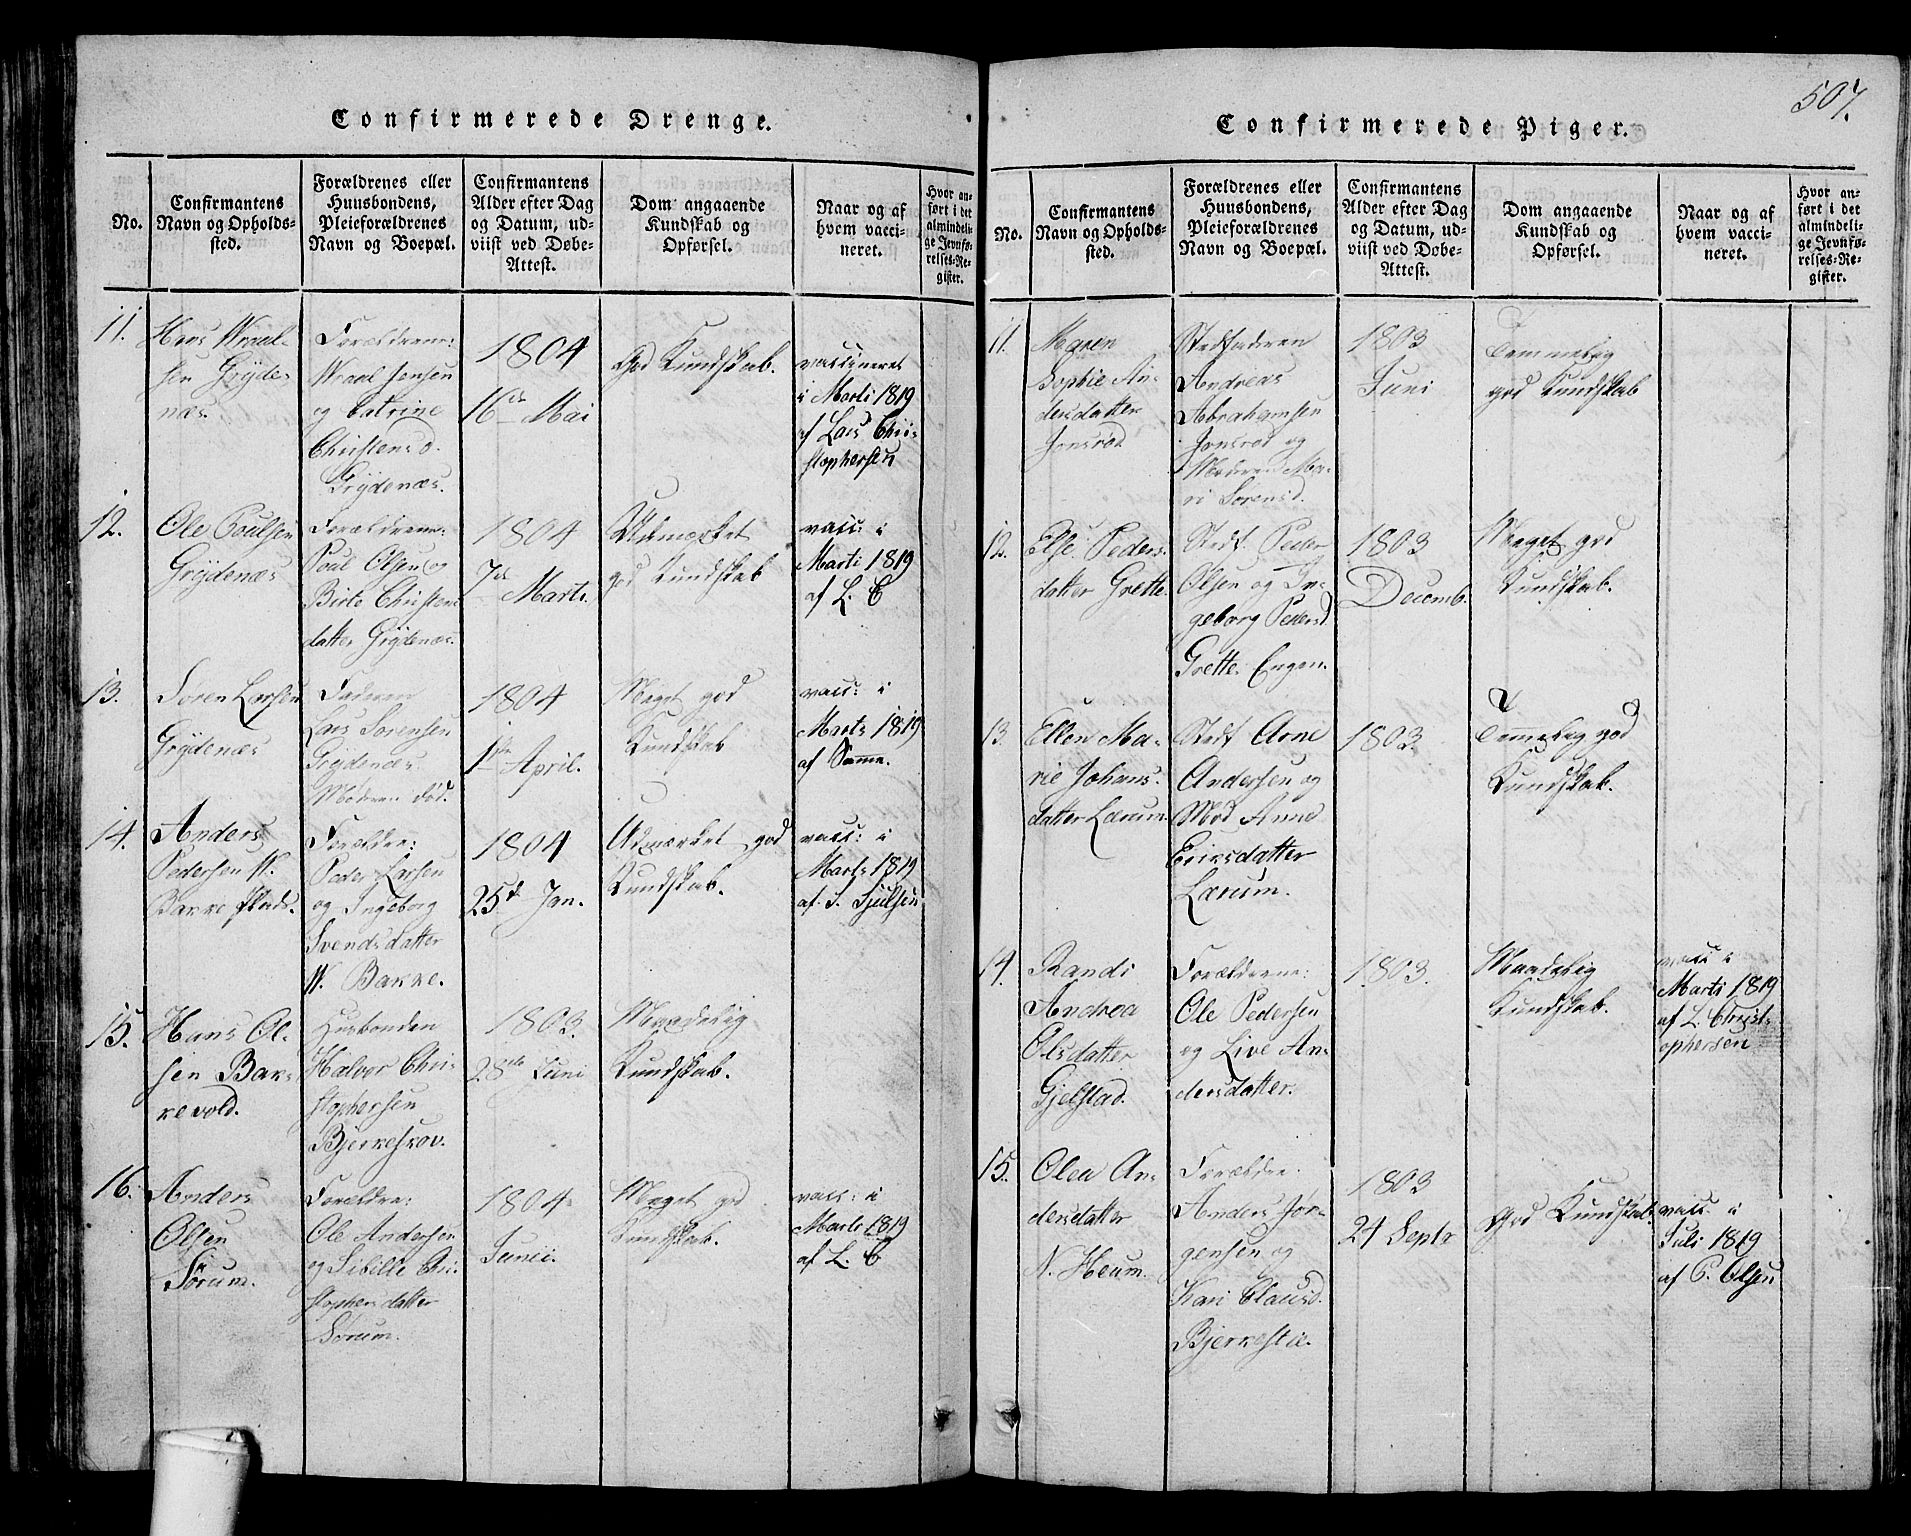 507.
Confirmerede Drenge.
No.
Confirmantens
Navn og Opholds-
sted.
Forældrenes eller
Huusbondens,
Pleieforældrenes
Navn og Boepæl.
Confirmantens
Alder efter Dag
og Datum, ud-
viist ved Døbe-
Attest.
Dom angaaende
Kundskab og
Opførsel.
Naar og af
hvem vacci-
neret.
Hvor an-
ført i det
almindeli-
ge Jevnfø-
relses-Re-
gister.
11.
Hans Wraal-
sen Grÿde-
næs
Forældrene:
Wraal Jensen
og Catrine
Christensd.
Grÿdenæs.
1804
16de Mai
God Kundskab.
vaccineret
i Marti 1819
af Lars Chri-
stophersen
12.
Ole Poulsen
Grÿdenæs
Forældrene:
Poul Olsen og
Birte Christens
datter Grÿdenæs.
1804
7de Marti.
Udmærket
god Kundskab
vacc: i
Marti 1819
af L. C
13.
Søren Larsen
Grÿdenæs
Faderen
Lars Sørensen
Grÿdenæs.
Moderen død.
1804
1ste April.
Meget god
Kundskab
vacc: i
Marts 1819
af Samme.
14.
Anders
Pedersen N.
Bakke
Forældre:
Peder Larsen
og Ingeborg
Svendsdatter
N. Bakke.
1804
25de Jan.
Udmærket god
Kundskab.
vacc: i
Marts 1819
af. S. Sjulsen
15.
Hans Ol-
sen Bak-
kevold.
Husbonden
Halvor Chri-
stophersen
Bjerkeskov.
1803
28de Juni
Maadelig
Kundskab.
16.
Anders
Olsen
Sørum.
Forældre:
Ole Andersen
og Sibille Chri-
stophersdatter
Sørum.
1804
Junii.
Meget god
Kundskab.
vacc: i
Marti 1819
af L. C
Confirmerede Piger.
No.
Confirmantens
Navn og Opholds-
sted.
Forældrenes eller
Huusbondens,
Pleieforældrenes
Navn og Boepæl.
Confirmantens
Alder efter Dag
og Datum, ud-
viist ved Døbe-
Attest.
Dom angaaende
Kundskab og
Opførsel.
Naar og af
hvem vacci-
neret.
Hvor an-
ført i det
almindeli-
ge Jevnfø-
relses-Re-
gister.
11.
Maren
Sophie An-
dersdatter
Jonsrod
Stedfaderen
Andreas
Abrahamsen
Jonsrod og
Moderen Ma-
ri Sørensd.
1803
Juni
Temmelig
god Kundskab
12.
Else Peders
datter Grette.
Stedf. Peder
Olsen og In-
geborg Pedersd
Grette Engen.
1803
Decemb.
Meget god
Kundskab.
13.
Ellen Ma-
rie Johans
datter Lærum.
Stedf Arne
Andersen og
Mod Anne
Eriksdatter
Lærum.
1803.
Temmelig god
Kundskab.
14.
Randi
Andrea
Olsdatter
Gjelstad.
Forældrene:
Ole Pedersen
og Live An-
dersdatter.
1803.
Maadelig
Kundskab.
vacc i
Marti 1819
af L. Christ-
ophersen
15.
Olea An-
dersdatter
N. Heum.
Forældre:
Anders Jør-
gensen og
Kari Clausd.
Bjerkestø.
1803
24 Septr
God Kundskab.
vacc: i
Juli 1819
af P. Olsen